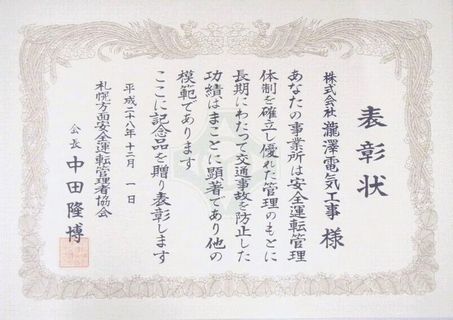 表彰状
株式会社 瀧澤電気工事 様
あなたの事業所は安全運転管理
体制を確立し優れた管理のもとに
長期にわたって交通事故を防止した
功績はまことに顕著であり他の
模範であります
ここに記念品を贈り表彰します
平成二十八年十二月一日
札幌方面安全運転管理者協会
会長 中田隆博